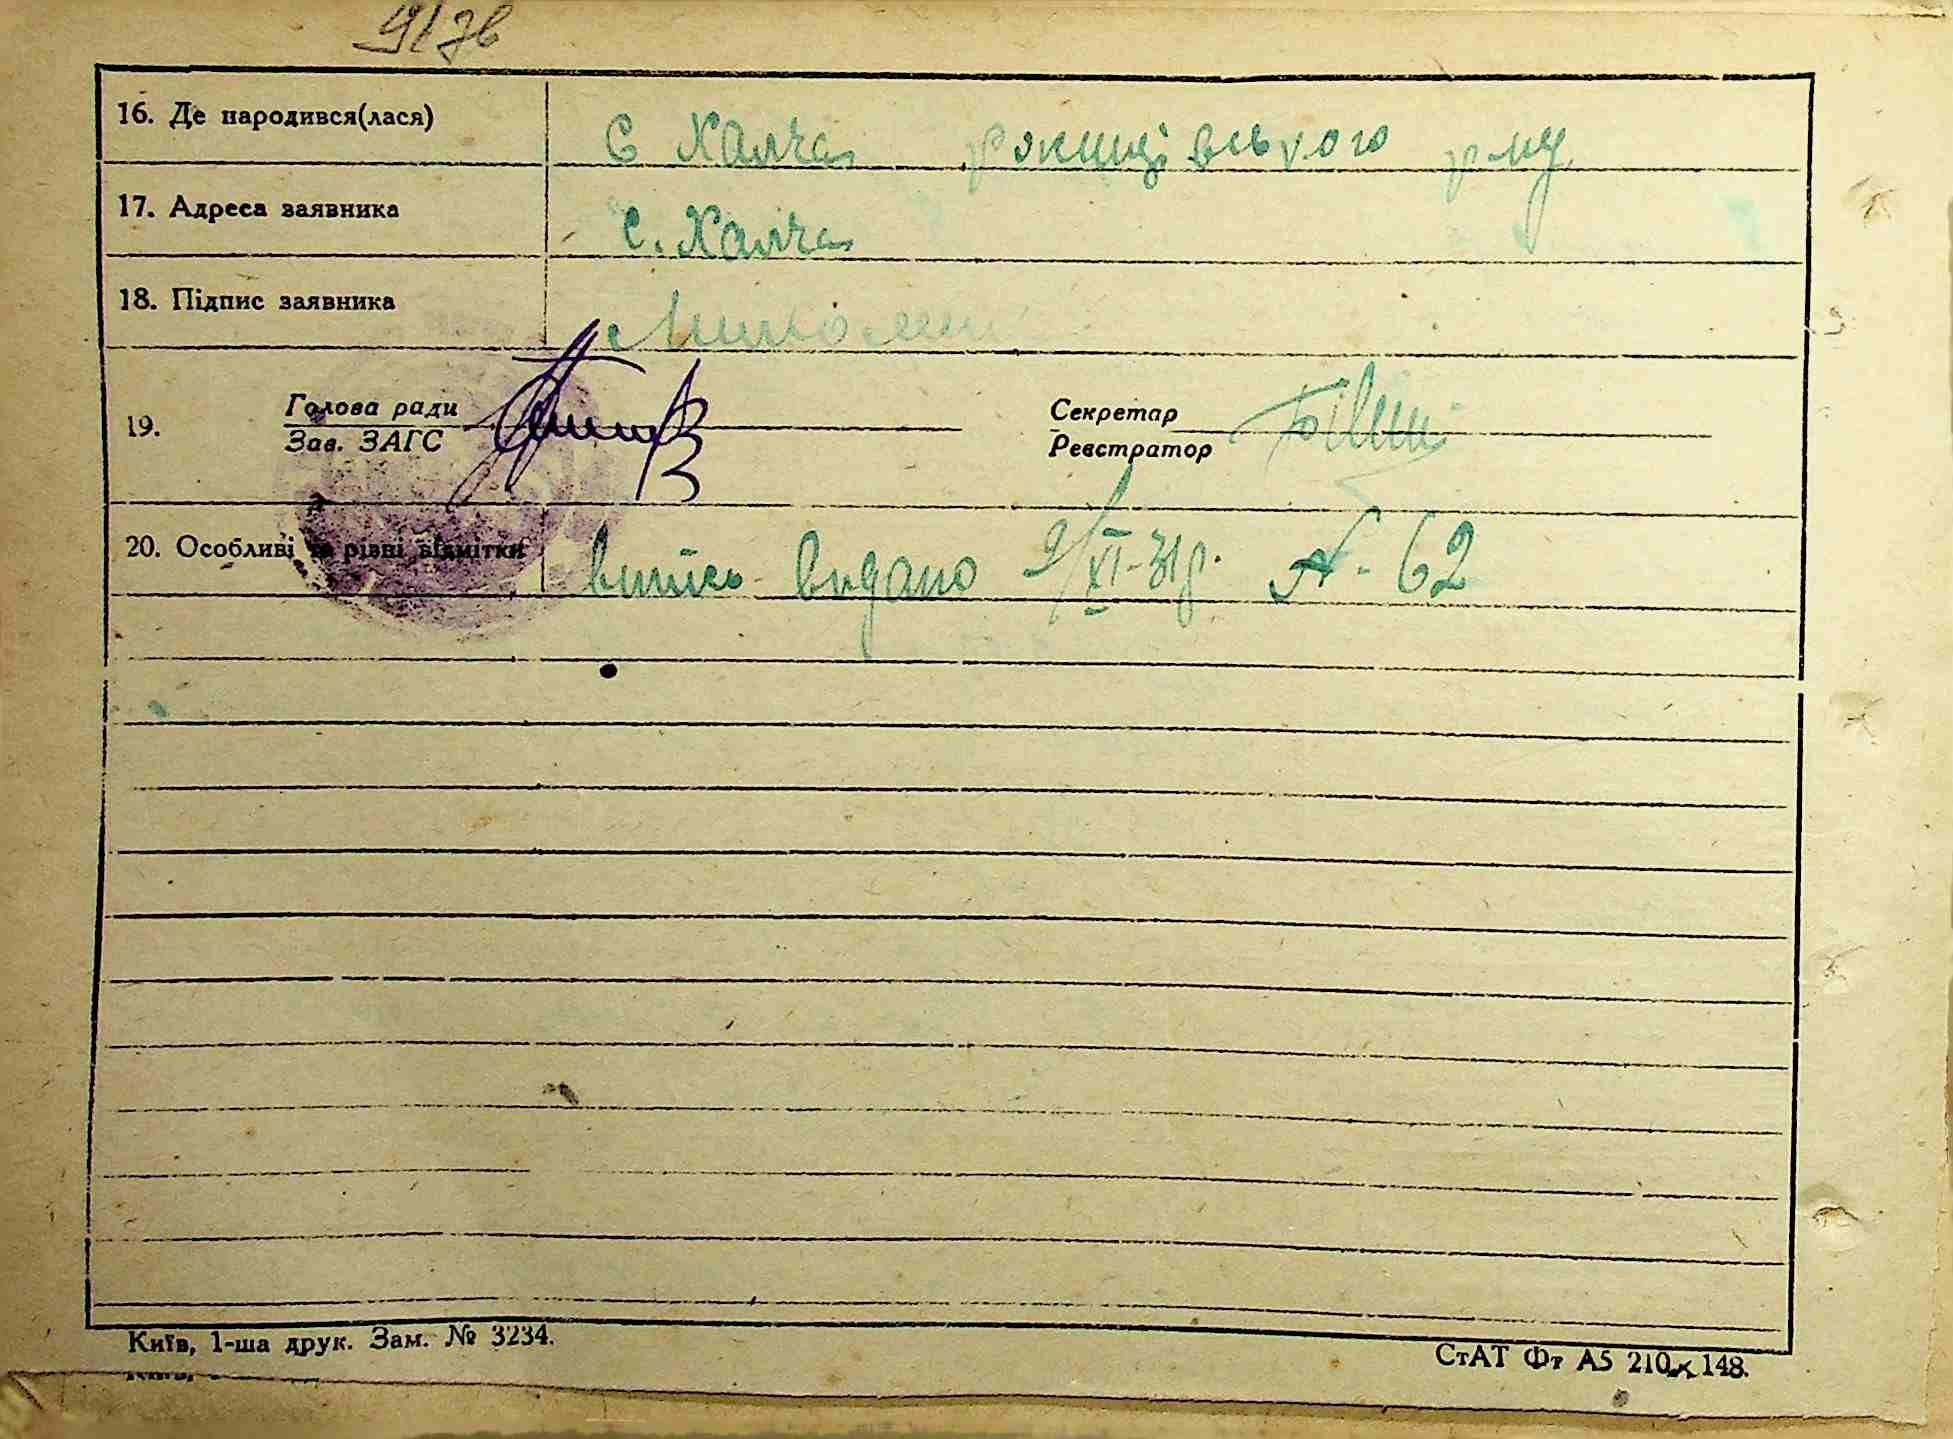 9/зв
16. Де народився(лася) С Халча ржищівського р-ну
17. Адреса заявника с. Халча
18. Підпис заявника
19. Голова ради Секретар
Зав. ЗАГС Реєстратор
20. Особливі та різні відмітки витяг видано 9/XI-31р. № 62
Київ, 1-ша друк. Зам. № 3234.
СтАТ Фт А5 210 x 148.